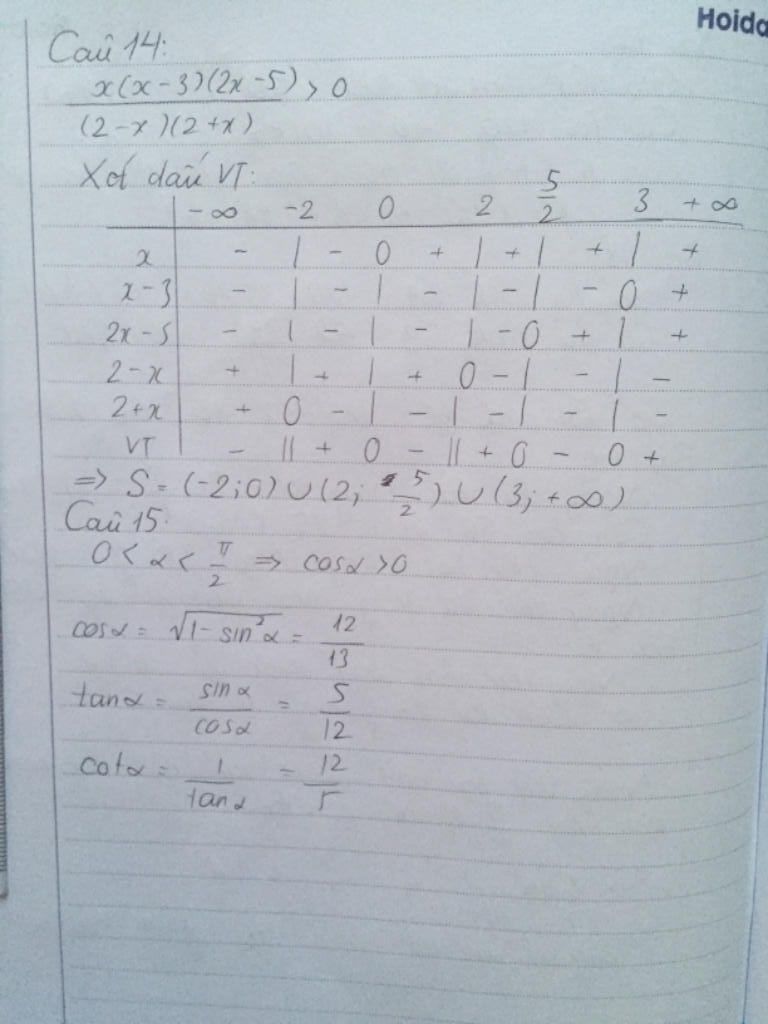 Hoida
Câu 14:
x(x-3)(2x-5) > 0
(2-x)(2+x)
Xét dấu VT:
-∞ -2 0 2 5/2 3 +∞
x - | - 0 + | + | + | +
x-3 - | - | - | - | - 0 +
2x-5 - | - | - | - 0 + | +
2-x + | + | + 0 - | - | -
2+x + 0 - | - | - | - | -
VT - || + 0 - || + 0 - 0 +
=> S = (-2;0) ∪ (2; 5/2) ∪ (3; +∞)
Câu 15:
0 < α < π/2 => cosα > 0
cosα = √(1-sin²α) = 12/13
tanα = sinα/cosα = 5/12
cotα = 1/tanα = 12/5